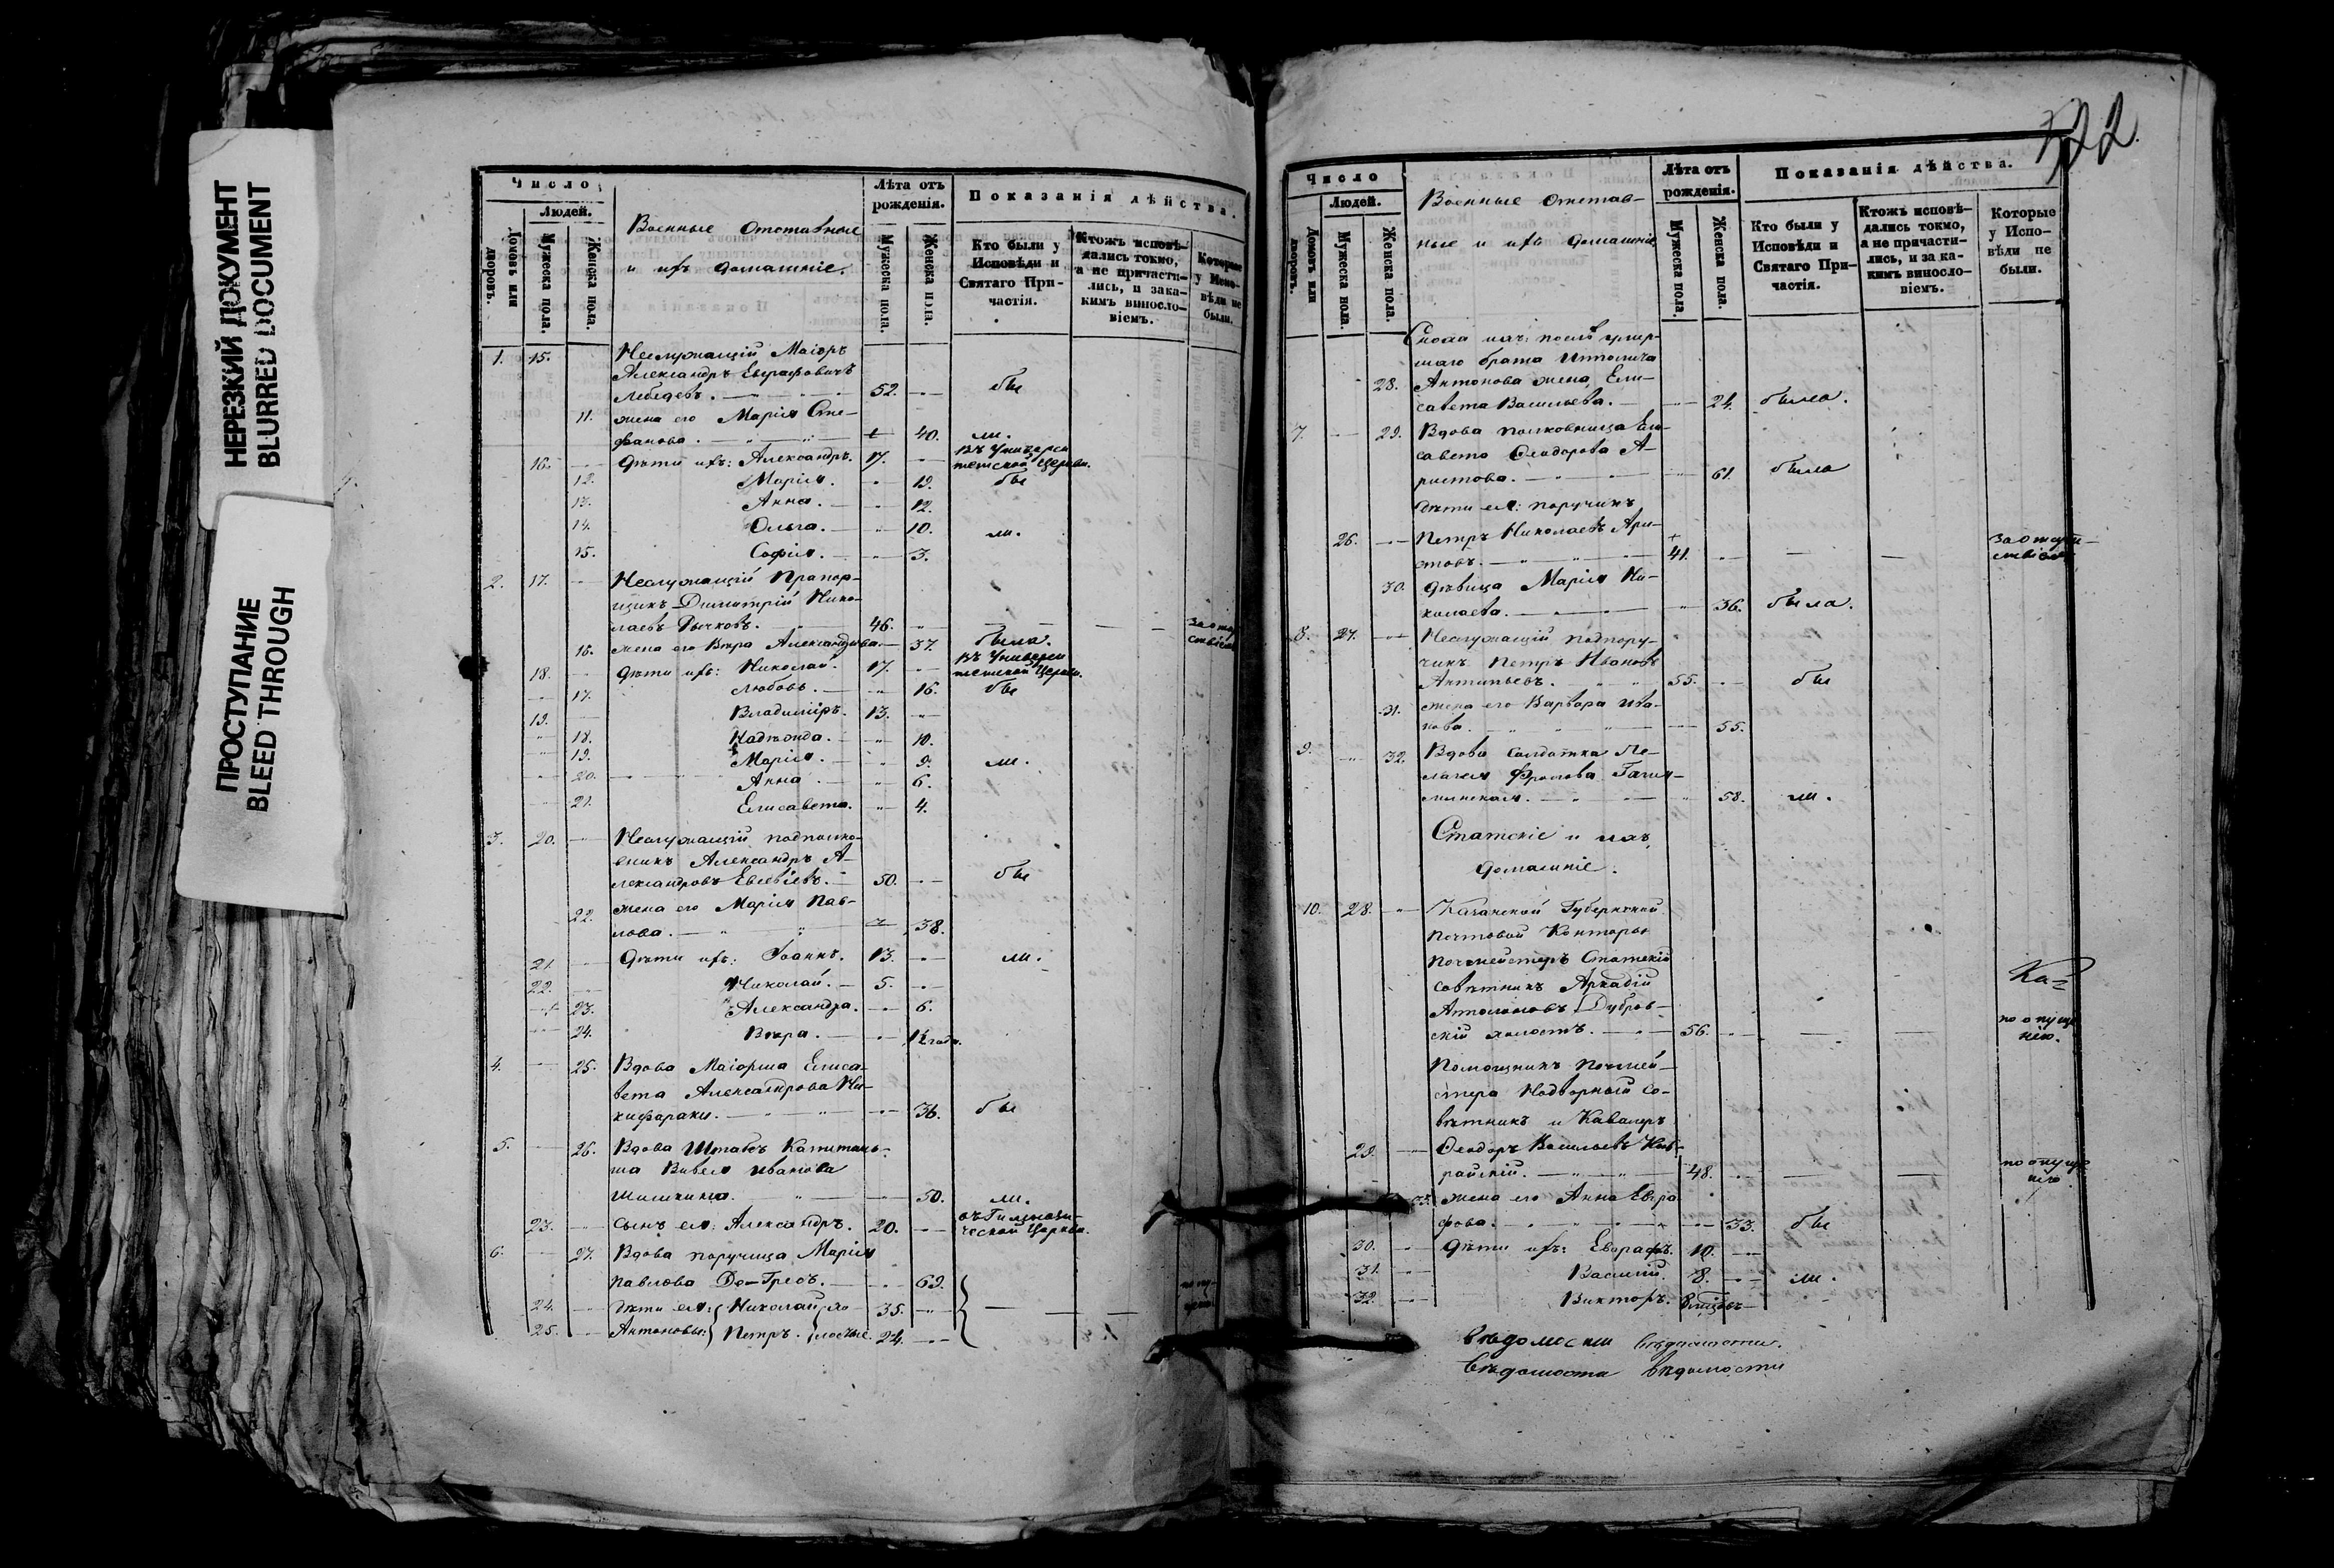 НЕРЕЗКИЙ ДОКУМЕНТ
BLURRED DOCUMENT
ПРОСТУПАНИЕ
BLEED THROUGH
Число
Людей.
Домовъ или дворовъ.
Мужеска пола.
Женска пола.
Военные Отставные
и ихъ домашніе.
Лѣта отъ рожденія.
Мужеска пола.
Женска пола.
Показанія дѣйства.
Кто были у Исповѣди и Святаго Причастія.
Ктожъ исповѣдались токмо, а не причастились, и за какимъ винословіемъ.
Которые у Исповѣди не были.
1. 15. Неслужащій Маіоръ
Александръ Евграфовичъ
Лебедевъ. 52. бы
11. жена его Марія Сте-
фанова. 40. ли.
16. Дѣти ихъ: Александръ. 17. въ Универси
тетской Церкви.
12. Марія. 19. бы
13. Анна. 12.
14. Ольга. 10. ли.
15. Софія. 3.
2. 17. Неслужащій Прапор-
щикъ Димитрій Нико-
лаевъ Рычковъ. 46.
16. жена его Вѣра Александрова. 37. была.
18. Дѣти ихъ: Николай. 17. въ Универси
тетской Церкви.
17. Любовь. 16. бы
19. Владиміръ. 13.
18. Надежда. 10.
19. Марія. 9. ли.
20. Анна. 6.
21. Елисавета. 4.
3. 20. Неслужащій подполко-
вникъ Александръ А-
лександровъ Евсевіевъ. 50. бы
22. жена его Марія Пав-
лова. 38.
21. Дѣти ихъ: Іоаннъ. 13. ли.
22. Николай. 5.
23. Александра. 6.
24. Вѣра.
4. 25. Вдова Маіорша Елиса-
вета Александрова Ни-
кифораки. 36. бы
5. 26. Вдова Штабсъ Капитань-
ша Иванова
Шишкина. 50. ли.
23. Сынъ ея: Александръ. 20. въ Гимнази-
ческой Церкви.
6. 27. Вдова поручица Марія
Павлова Де-Гресъ. 69.
24. Дѣти ея: Николай хо- 35.
25. Антоновы: Петръ. лостые. 24.
322.
Число
Людей.
Домовъ или дворовъ.
Мужеска пола.
Женска пола.
Военные отстав-
ные и ихъ домашніе
Лѣта отъ рожденія.
Мужеска пола.
Женска пола.
Показанія дѣйства.
Кто были у Исповѣди и Святаго Причастія.
Ктожъ исповѣдались токмо, а не причастились, и за какимъ винословіемъ.
Которые у Исповѣди не были.
Сноха ихъ: послѣ умер-
шаго брата Ипполита
28. Антонова жена Ели-
савета Васильева. 24. была.
7. 29. Вдова полковница Ели-
савета Ѳеодорова А-
ристова. 61. была
Дѣти ея: поручикъ
26. Петръ Николаевъ Ари-
стовъ. 41.
30. дѣвица Марія Ни-
колаева. 36. была.
8. 27. Неслужащій подпору-
чикъ Петръ Ивановъ
Антипьевъ. 55. бы
31. жена его Варвара Ива-
нова. 55.
9. 32. Вдова солдатка Пе-
лагея Фролова
58. ли.
Статскіе и ихъ
домашніе.
10. 28. Казанской Губернской
Почтовой Конторы
почмейстеръ Статскій
совѣтникъ Аркадій
Аполлоновъ Дубров-
скій холостъ. 56. по опуще
нію.
Помощникъ почмей-
стера Надворный со-
вѣтникъ и Кавалеръ
29. Ѳеодоръ Васильевъ
48. по опуще
нію
33. жена его Анна Евгра
фова. 33. бы
30. Дѣти ихъ: Евграфъ. 10.
31. Василій. 8. ли.
32. Викторъ.
вѣдомости вѣдомости.
вѣдомости вѣдомости